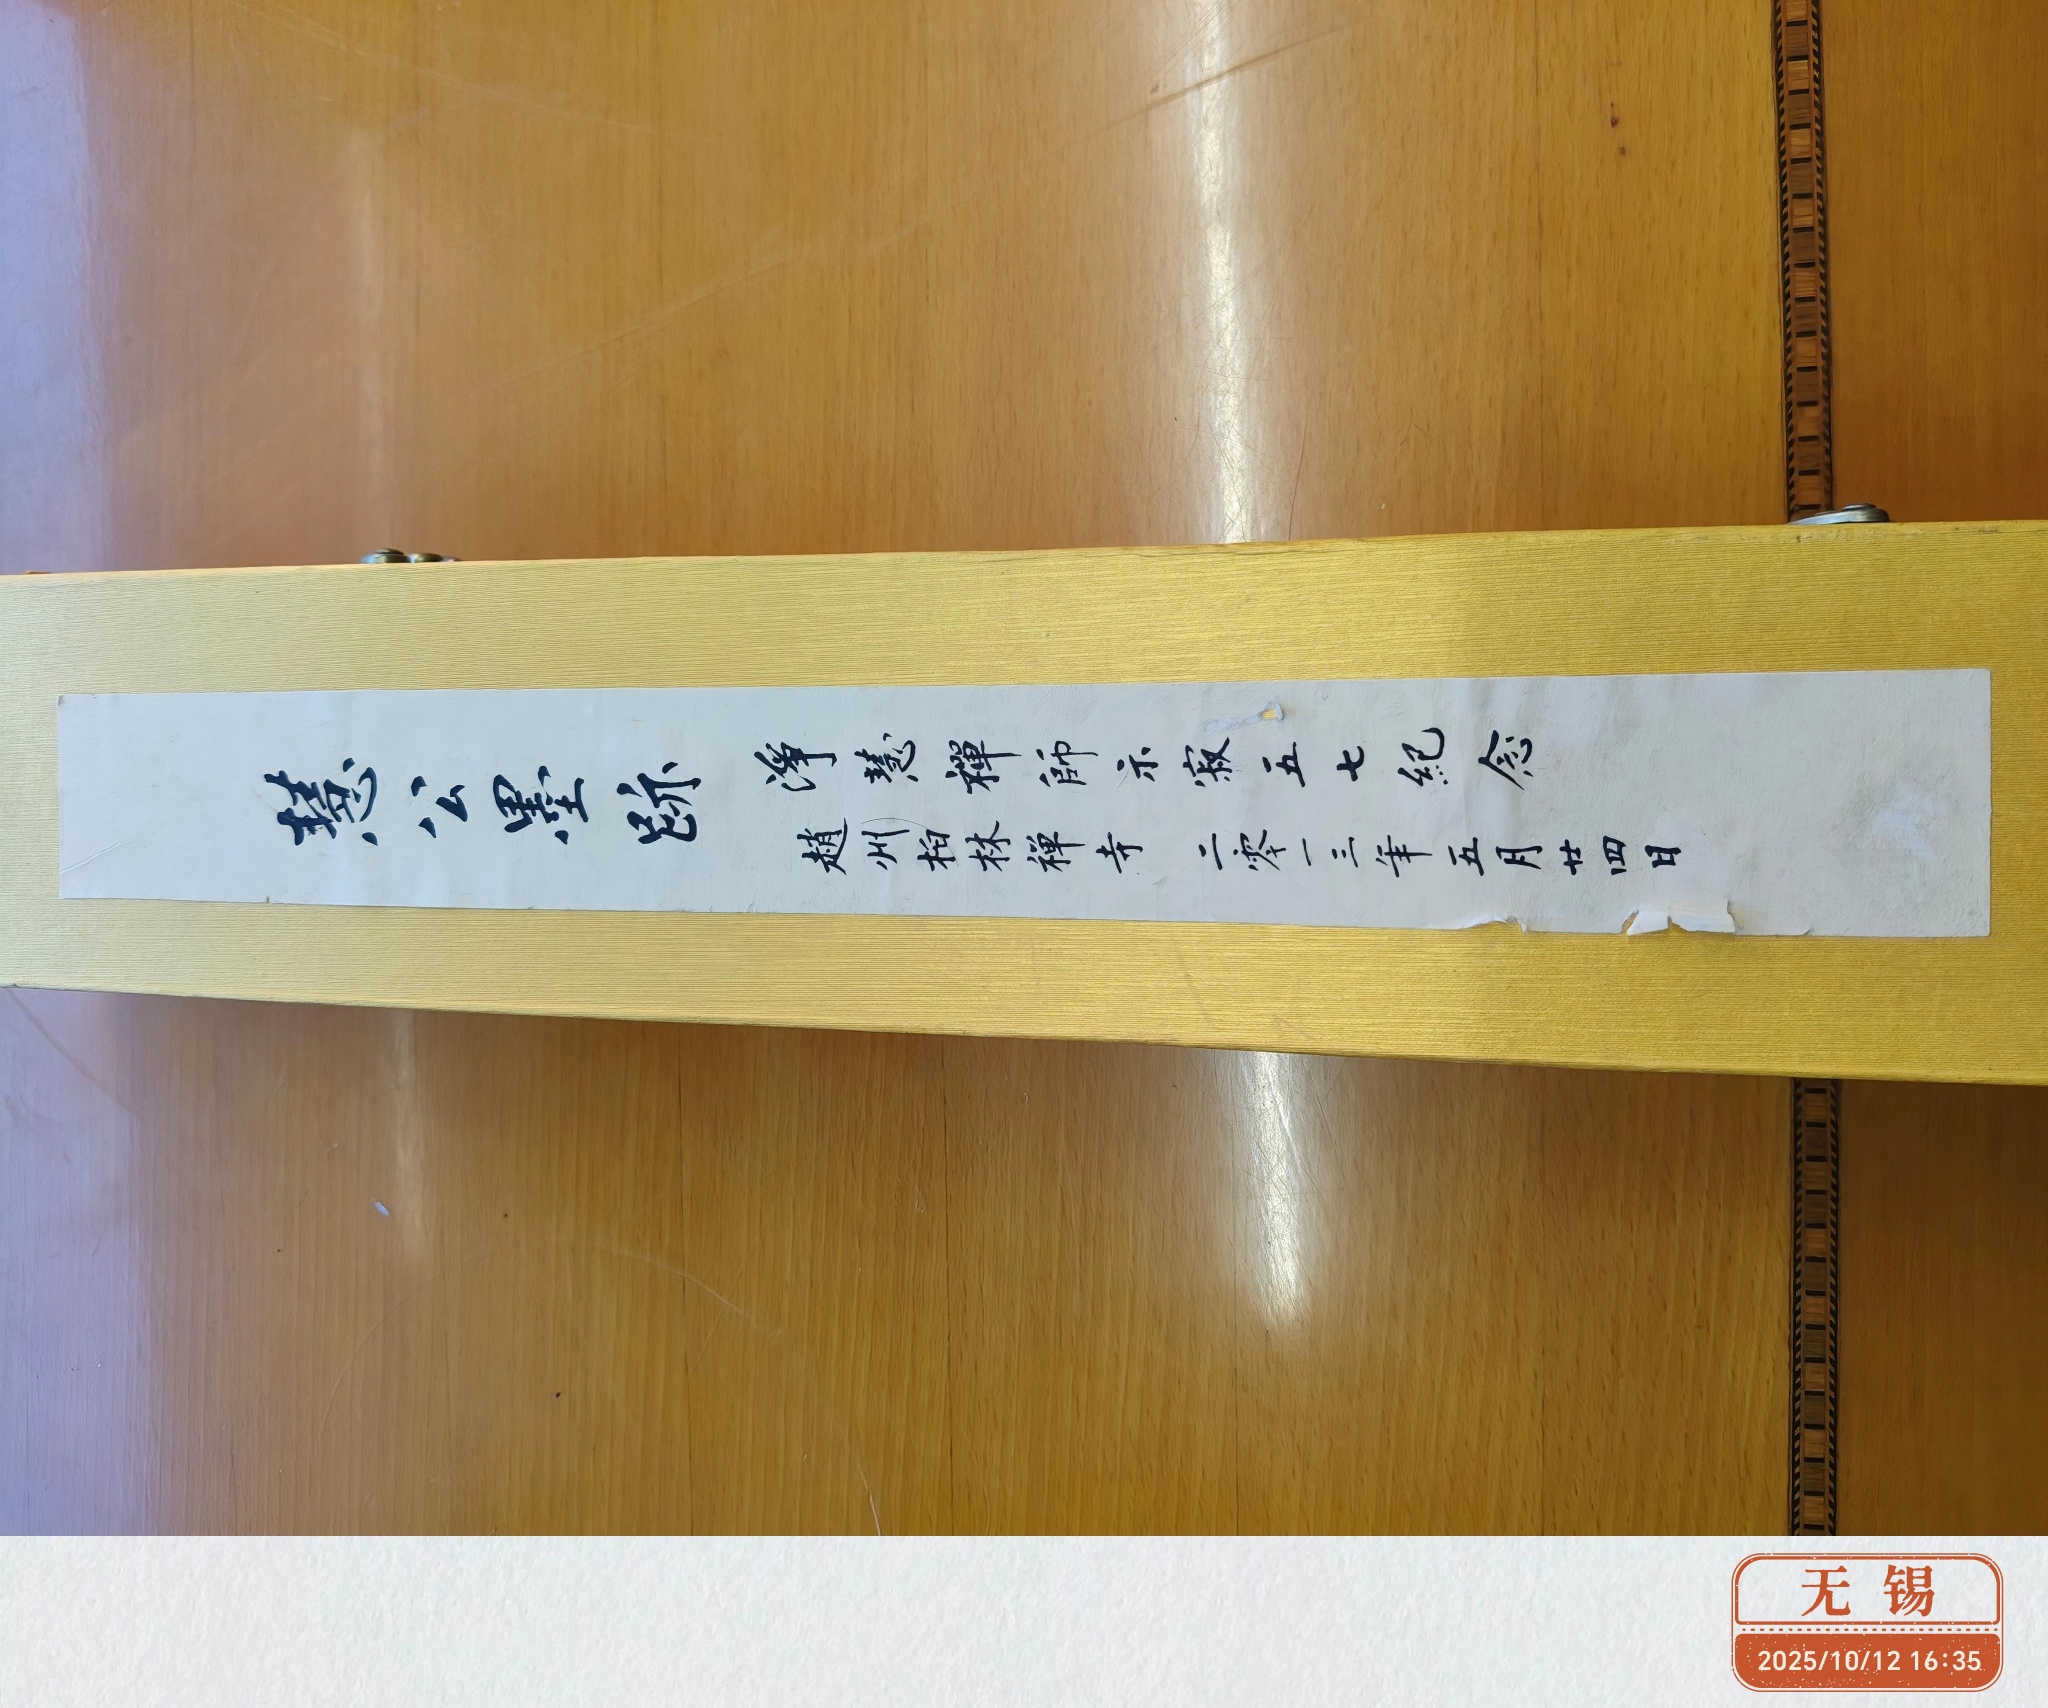 慧公墨跡
淨慧禪師示寂五七紀念
趙州柏林禪寺 二零一三年五月廿四日
无锡
2025/10/12 16:35